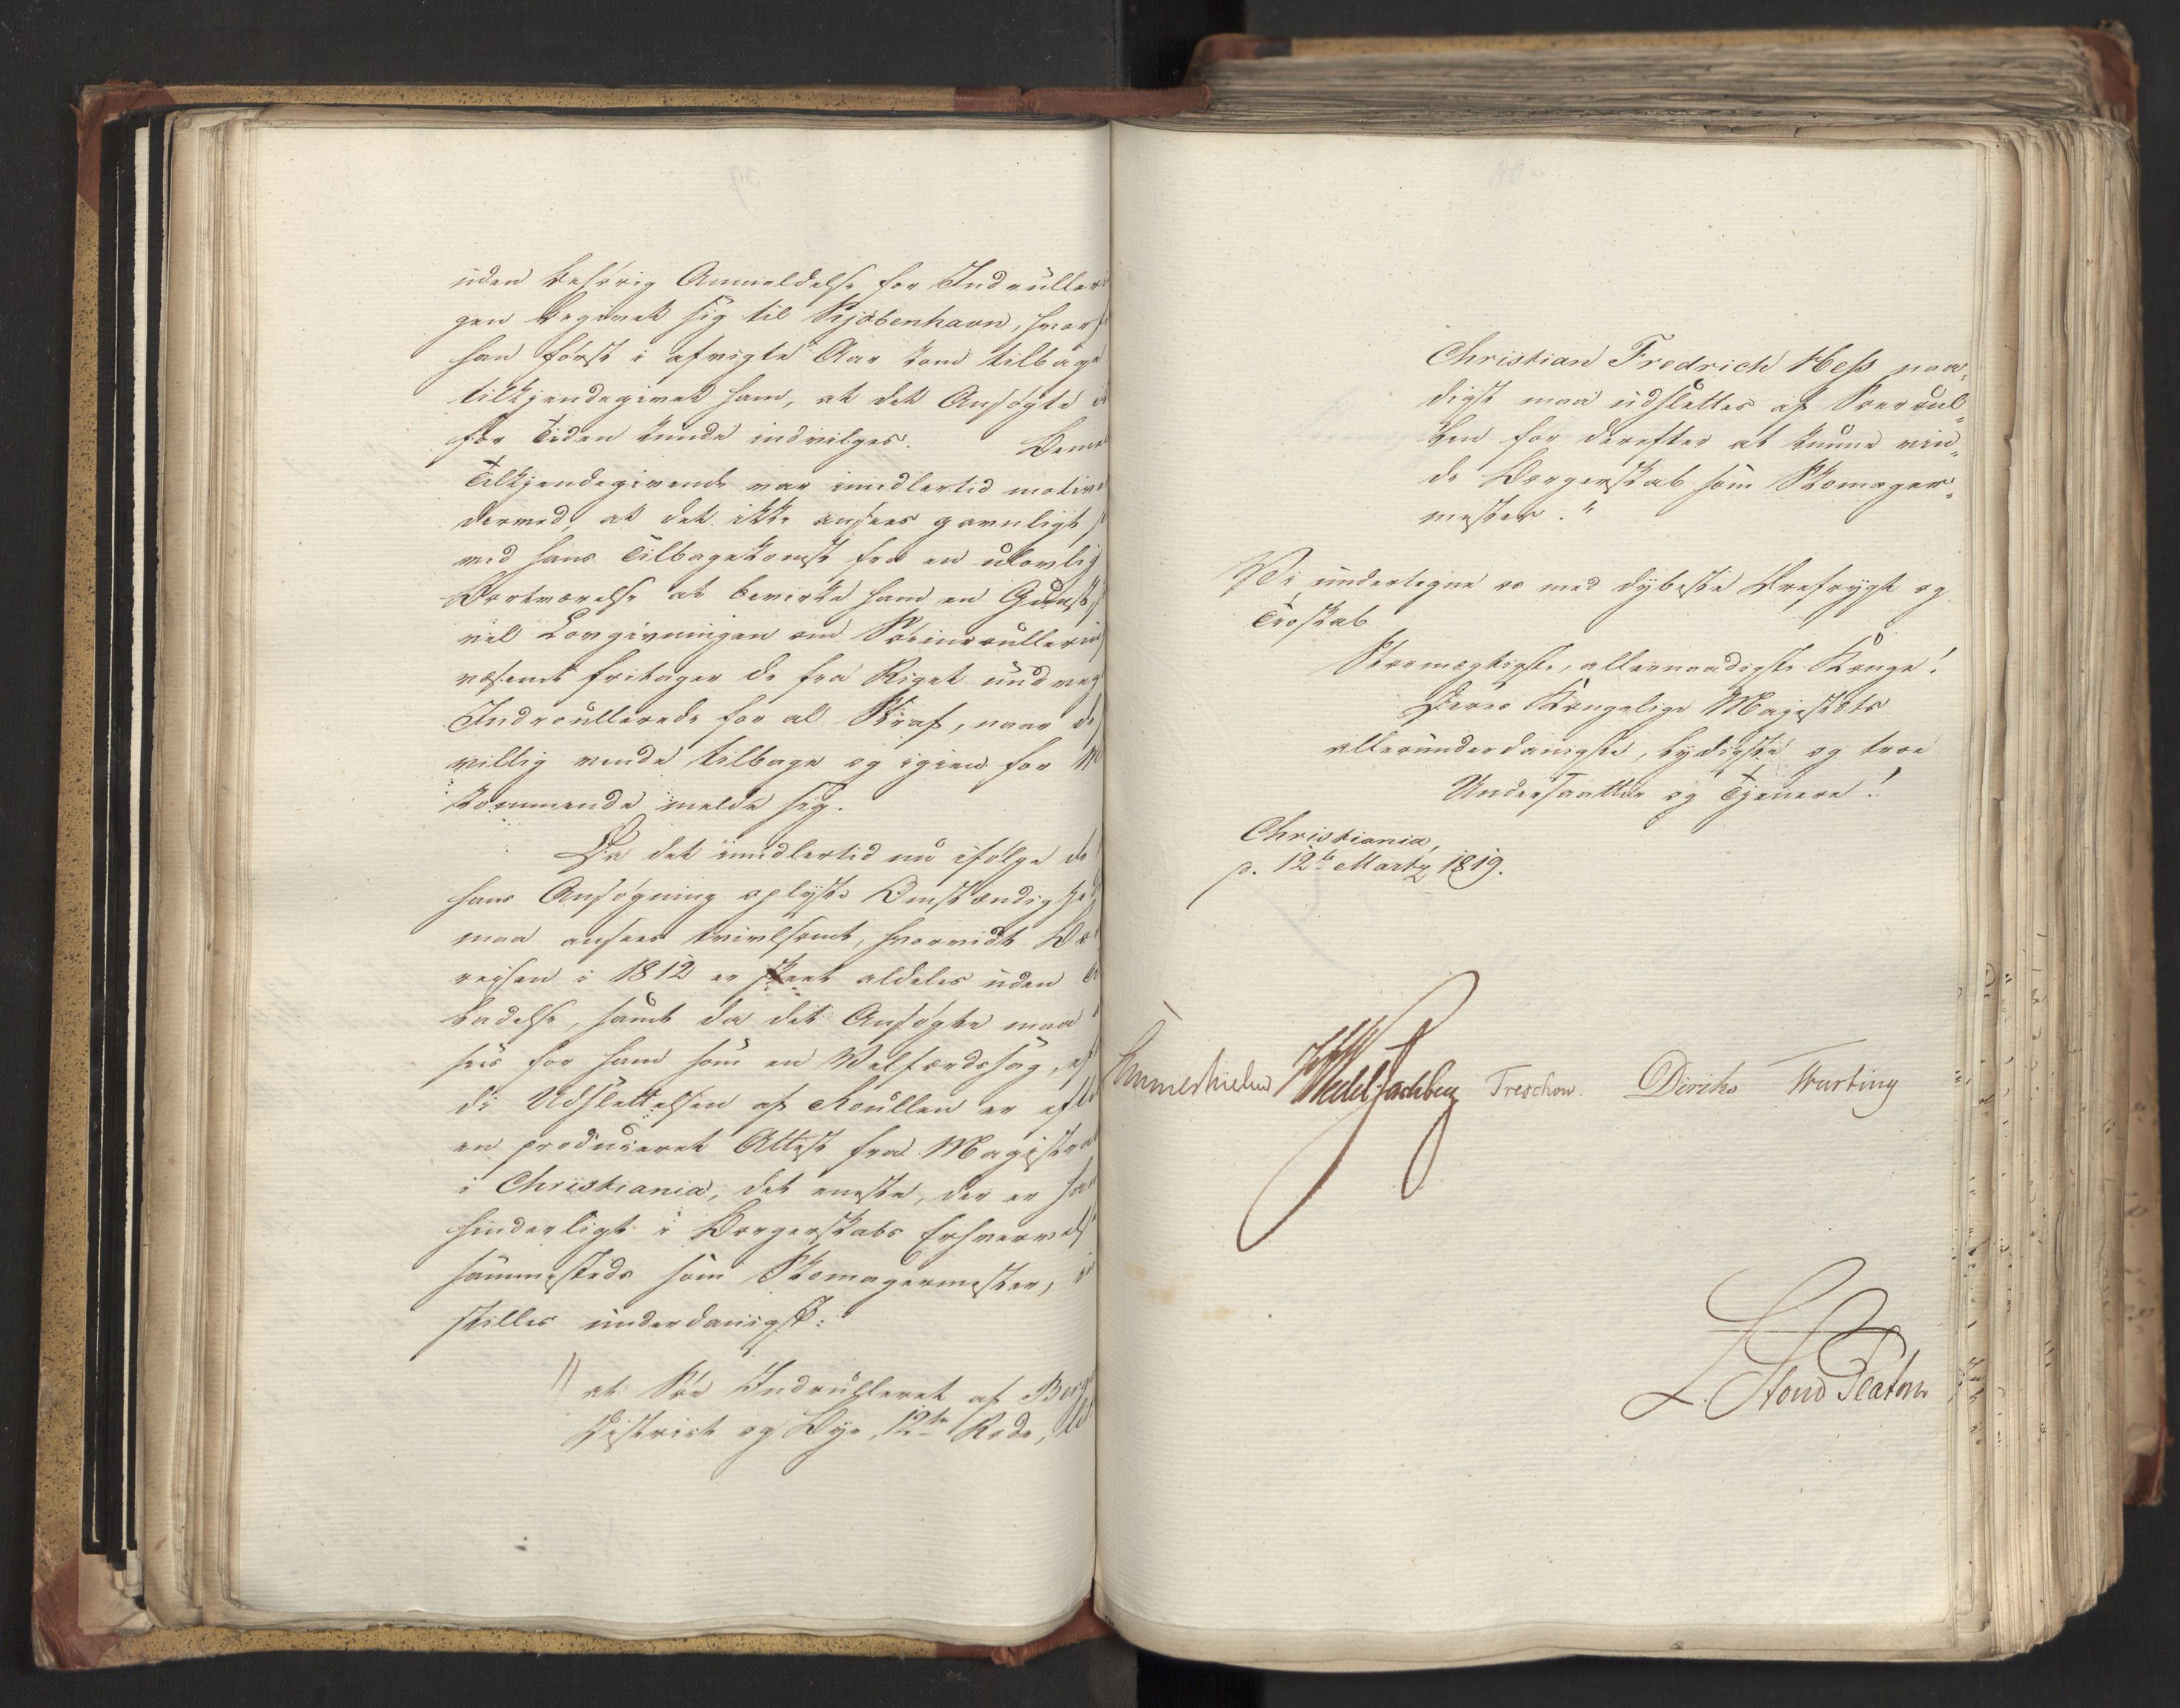 uden behørig Anmeldelse for Indrulleri
gen begivet sig til Kjøbenhavn, hvor f
han først i afvigte Aar kom tilbage
tilkjendegivet ham, at det Ansøgte ei
for Tiden kunde indvilges. Denne
Tilkjendegivende var imidlertid motive
derved, at det ikke ansees gavnligt
ved hans Tilbagekomst fra en ulovlig
Bortværelse at bevirke ham en Gunst,
vel Lovgivningen om Søeinrullerings
væsenet fritager de fra Riget undveg
Indroullerede for al Straf, naar de
villig vende tilbage og igien for
kommende melde sig.
Da det imidlertid nu ifølge de
hans Ansøgning oplyste Omstændighed
maa ansees tvivlsomt, hvorvidt Bort
reisen i 1812 er skeet aldeles uden
ladelse, samt da det Ansøgte maa
sees for ham som en Velfærdssag,
da Udslettelsen af Roullen er efter
en produceret Attest fra Magistra
i Christiania, det eneste, der er ham
hinderligt i Borgerskabs Erhvervelse
sammesteds som Skomagermester,
stilles underdanigst:
"at Søe Indroulleret af Berg
District og Bye, 12te Rode,
Christian Fredrich Hess naa-
digst maa udslettes af Søeroul-
len for derefter at kunne vin-
de Borgerskab som Skomager-
mester."
Vi undertegne os med dybeste Ærefrygt og
Troskab
Stormægtigste, allernaadigste Konge!
Deres Kongelige Majestæts
allerunderdanigste, lydigste og troe
Undersaatter og Tjenere!
Christiania,
p. 12te Martz 1819.
Sommerhielm Wedel Jarlsberg Treschow. Diriks Fasting
L. Stoud Platou